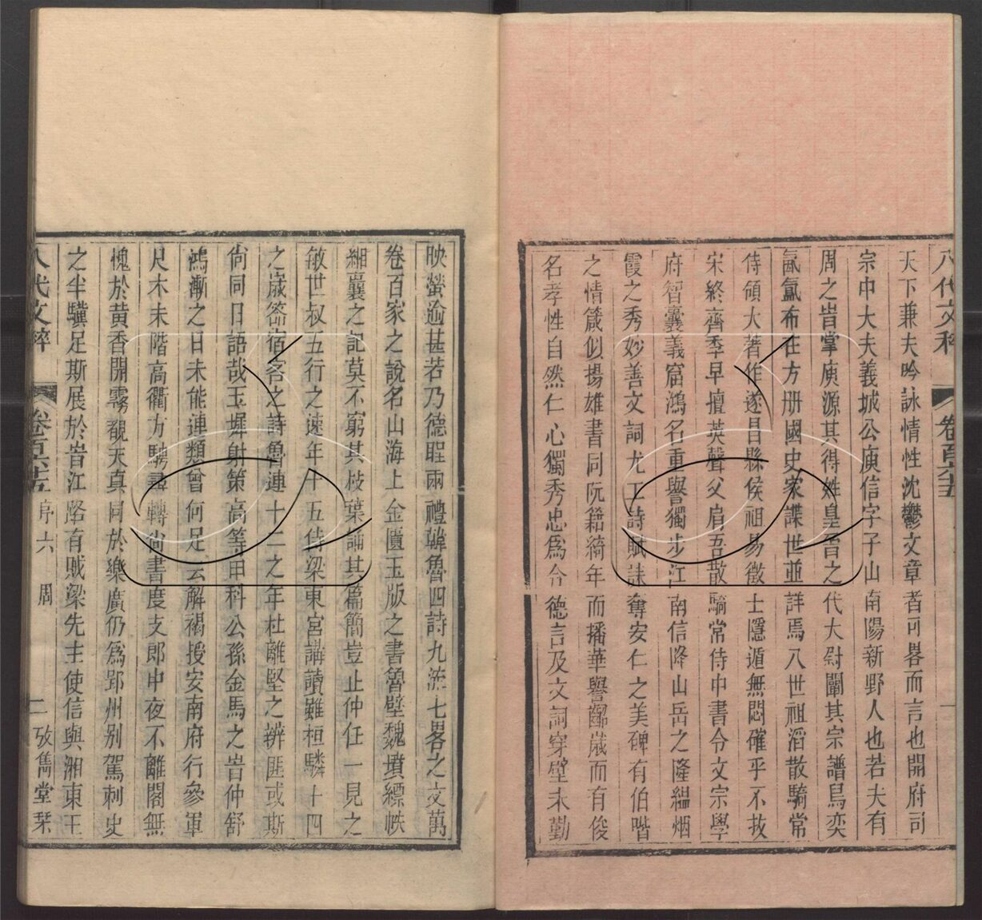 八代文粹 卷百六十五
天下兼夫吟詠情性沈鬱文章者可畧而言也開府司
宗中大夫義城公庾信字子山南陽新野人也若夫有
周之旹掌庾源其得姓皇晉之代大尉闡其宗譜鳥奕
氤氳布在方册國史家諜世並詳焉八世祖滔散騎常
侍領大著作遂昌縣侯祖易徵士隱遁無悶確乎不抜
宋終齊季早擅英聲父肩吾散騎常侍中書令文宗學
府智囊義窟鴻名重譽獨步江南信降山岳之隆縕烟
霞之秀妙善文詞尤工詩賦誄奪安仁之美碑有伯喈
之情箴似揚雄書同阮籍綺年而播華譽齠歲而有俊
名孝性自然仁心獨秀忠爲令德言及文詞穿壁未勤
映螢逾甚若乃德聖兩禮韓魯四詩九流七畧之文萬
卷百家之說名山海上金匱玉版之書魯壁魏墳縹帙
緗囊之記莫不窮其枝葉誦其篇簡豈止仲任一見之
敏世叔五行之速年十五侍梁東宮講讀雖桓驎十四
之歲答宿客之詩魯連十二之年杜離堅之辨匪或斯
尙同日語哉玉墀射策高等甲科公孫金馬之旹仲舒
鴻漸之日未能連類曾何足云解褐授安南府行參軍
尺木未階高衢方騁尋轉尙書度支郎中夜不離閣無
愧於黄香開霧覩天真同於樂廣仍爲郢州别駕刺史
之半驥足斯展於旹江路有賊梁先主使信與湘東王
八代文粹 卷百六十五 序六 周 二 攷雋堂栞